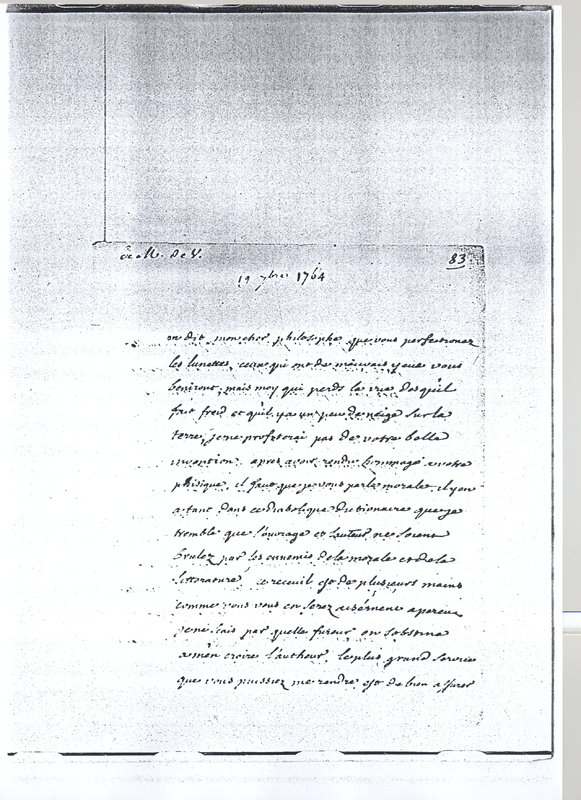 de M. de V.
83
19 7bre 1764
on dit, mon cher philosophe que vous perfectionez
les lunettes, ceux qui ont de mauvais yeux vous
beniront, mais moy qui perds la vue des qu'il
fait froid et qu'il y a un peu de neige sur la
terre, je ne profiterai pas de votre belle
invention. apres avoir rendu hommage a votre
phisique, il faut que je vous parle morale. il y en
a tant dans ce diabolique dictionaire que je
tremble que l'ouvrage et l'auteur ne soient
brulez par les ennemis de la morale et de la
litterature. ce receuil est de plusieurs mains
comme vous vous en serez aisément aperceu
je ne scais par quelle fureur on s'obstine
a m'en croire l'autheur. le plus grand service
que vous puissiez me rendre est de bien assurer